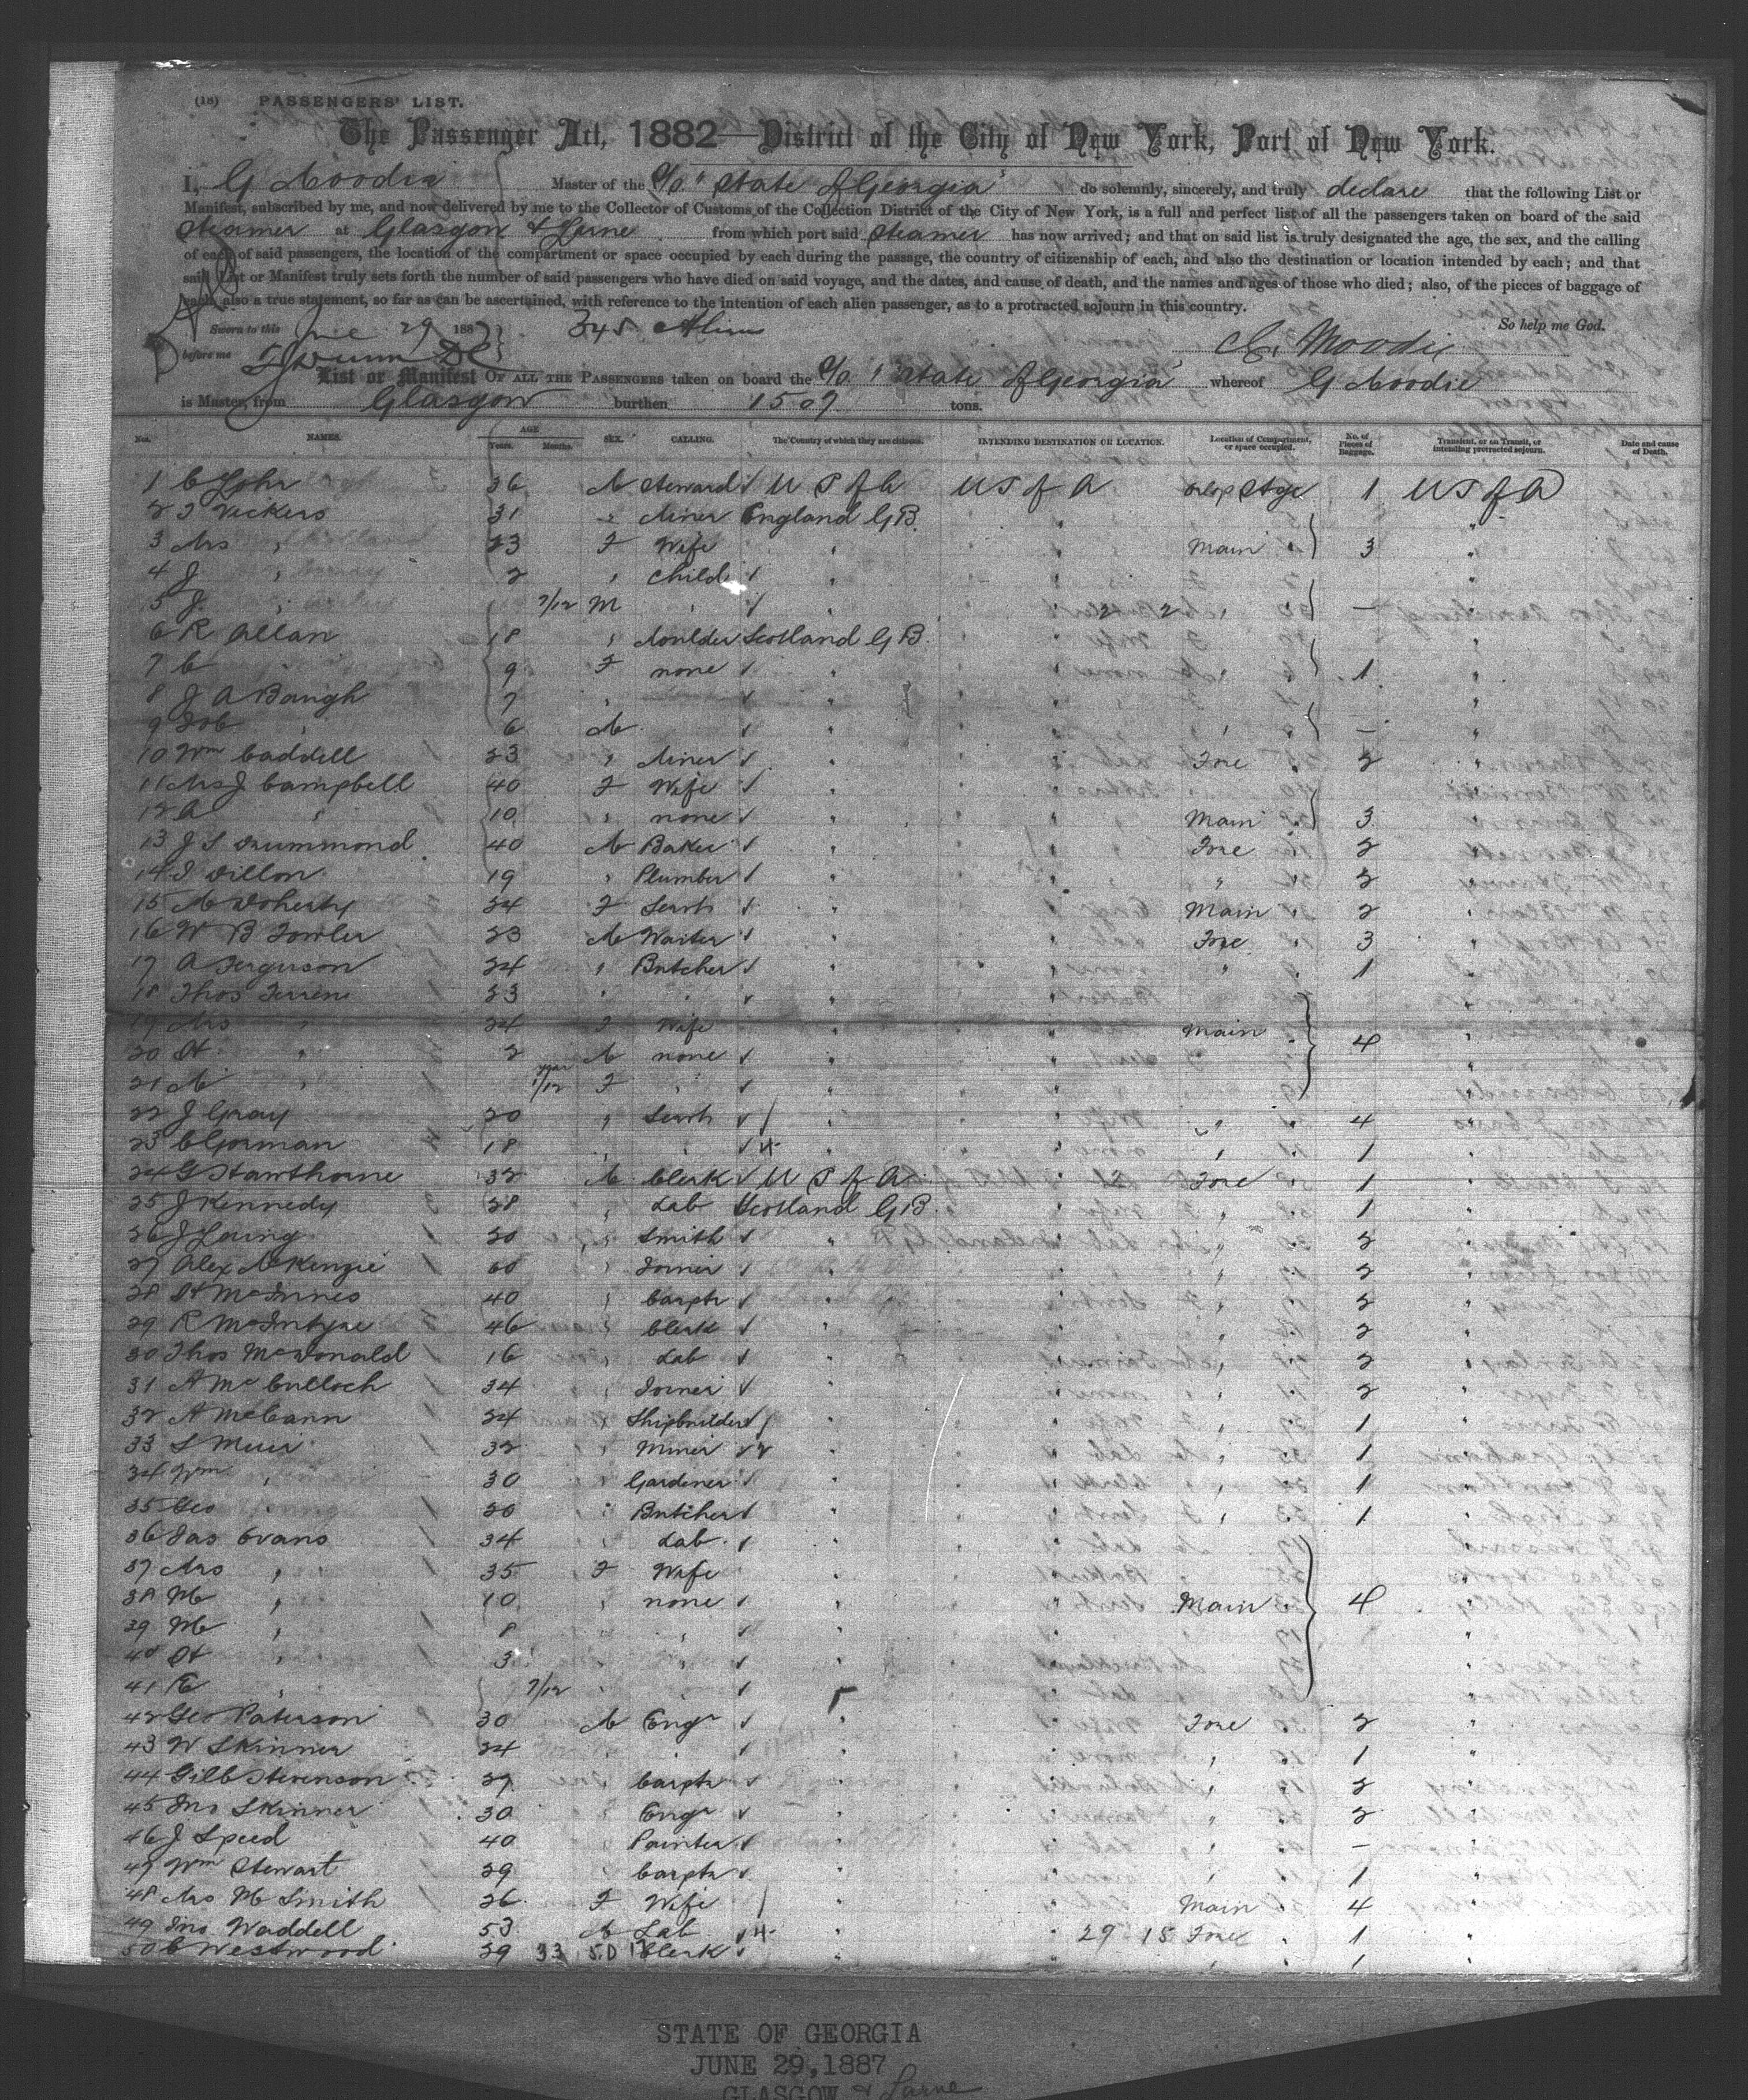 (18) PASSENGERS' LIST.
The Passenger Act, 1882—District of the City of New York, Port of New York.
I, G Moodie Master of the S/S "State of Georgia" do solemnly, sincerely, and truly declare that the following List or
Manifest, subscribed by me, and now delivered by me to the Collector of Customs of the Collection District of the City of New York, is a full and perfect list of all the passengers taken on board of the said
Steamer at Glasgow & Larne from which port said Steamer has now arrived; and that on said list is truly designated the age, the sex, and the calling
of each of said passengers, the location of the compartment or space occupied by each during the passage, the country of citizenship of each, and also the destination or location intended by each; and that
said List or Manifest truly sets forth the number of said passengers who have died on said voyage, and the dates, and cause of death, and the names and ages of those who died; also, of the pieces of baggage of
each, also a true statement, so far as can be ascertained, with reference to the intention of each alien passenger, as to a protracted sojourn in this country.
Sworn to this June 29 1887 So help me God.
before me G. Moodie
List or Manifest OF ALL THE PASSENGERS taken on board the S/S "State of Georgia" whereof G Moodie
is Master, from Glasgow burthen 1507 tons.
Nos. NAMES. AGE Years. Months. SEX. CALLING. The Country of which they are citizens. INTENDING DESTINATION OR LOCATION. Location of Compartment, or space occupied. No. of Pieces of Baggage. Transient, or on Transit, or intending protracted sojourn. Date and cause of Death.
1 C John 36 M Steward U S of A U S of A Stge 1 U S of A
2 J Vickers 31 " Miner England G B "
3 Mrs " 23 F Wife " Main " 3 "
4 J " 2 " Child " "
5 J " 7/12 M " " — "
6 R Allan 18 " Moulder Scotland G B "
7 C 9 F none " " 1 "
8 J A Baugh 7 " " "
9 Rob " 6 M " " — "
10 Wm Caddell 23 " Miner " Fore " 2 "
11 Mrs J Campbell 40 F Wife " "
12 A " 10 " none " Main " 3 "
13 J S Drummond 40 M Baker " Fore " 2 "
14 J Dillon 19 " Plumber " " 2 "
15 M Doherty 24 F Servt " Main " 2 "
16 W B Fowler 23 M Waiter " Fore " 3 "
17 A Ferguson 24 " Butcher " " 1 "
18 Thos 23 " " " "
19 Mrs " 24 F Wife " Main "
20 " 2 M none " 4 "
21 M " 1/12 F " " "
22 J Gray 20 " Servt " " 4 "
23 C Gorman 18 " " 1 "
24 G Hawthorne 32 M Clerk U S of A Fore " 1 "
25 J Kennedy 28 " Lab Scotland G B " 1 "
26 J Laing 20 " Smith " " 2 "
27 Alex McKenzie 60 " Joiner " " 2 "
28 McInnes 40 " Carptr " " 2 "
29 R McIntyre 46 " Clerk " " 2 "
30 Thos McDonald 16 " Lab " " 2 "
31 A McCulloch 34 " Joiner " " 2 "
32 A McCann 24 " Shipbuilder " " 1 "
33 S Muir 32 " Miner " " 1 "
34 Wm " 30 " Gardener " " 1 "
35 Geo 20 " Butcher " " 1 "
36 Jas Evans 34 " Lab " "
37 Mrs " 35 F Wife " "
38 M " 10 " none " Main " 4 "
39 M " 8 " " " "
40 " 3 " " " "
41 " 7/12 " " " "
42 Geo Paterson 30 M Engr " Fore " 2 "
43 W Skinner 24 " " " 1 "
44 Gilb Stevenson 27 Carptr " " 2 "
45 Jno Skinner 30 " Engr " " 2 "
46 J Speed 40 Painter " " — "
47 Wm Stewart 29 " Carptr " " 1 "
48 Mrs M Smith 26 F Wife " Main " 4 "
49 Jno Waddell 53 M Lab " 29 15 Fore " 1 "
50 C Westwood 29 33 Clerk " " 1 "
STATE OF GEORGIA
JUNE 29, 1887
GLASGOW & Larne